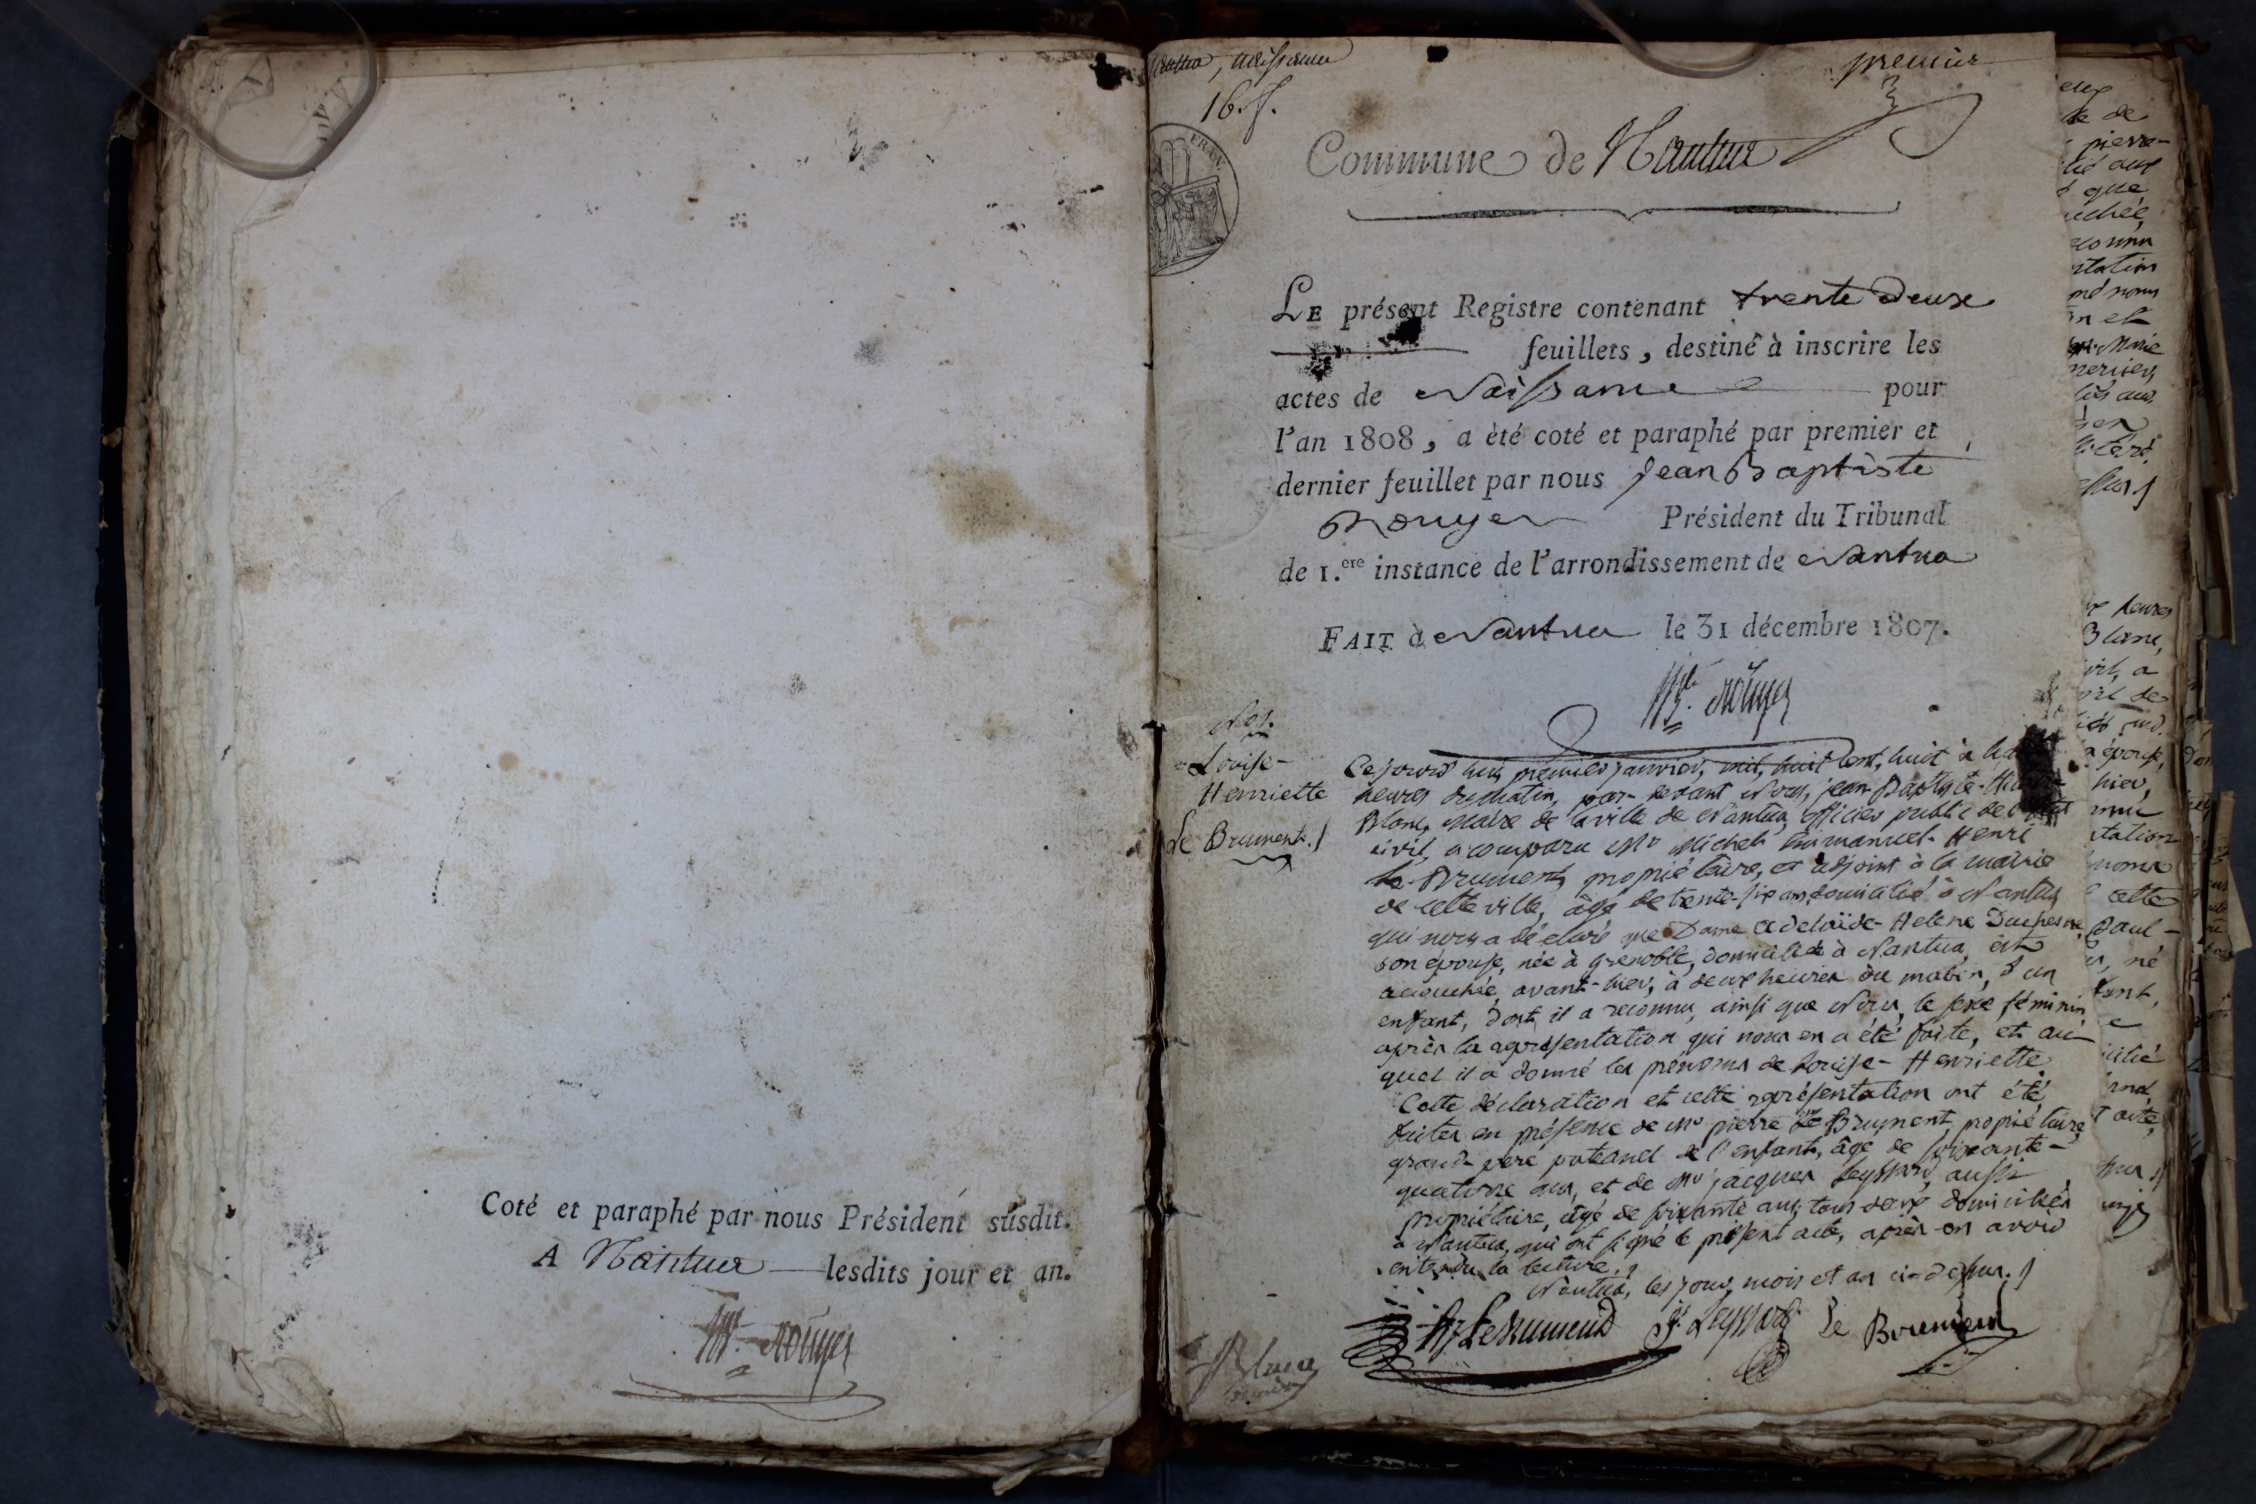 Coté et paraphé par nous Président susdit.
A Nantua lesdits jour et an.
premier
16. f.
Commune de Nantua
LE présent Registre contenant trente deux
feuillets, destiné à inscrire les
actes de Naissance pour
l'an 1808, a été coté et paraphé par premier et
dernier feuillet par nous Jean Baptiste
Rouyer Président du Tribunal
de 1.ere instance de l'arrondissement de Nantua
FAIT à Nantua le 31 décembre 1807.
Louise-
Henriette
Le Brument
Cejourd'hui premier janvier, mil huit cent, huit à
heures du matin, par-devant Nous, jean-Baptiste
Blanc, Maire de la ville de Nantua, officier public de l'état
civil, a comparu Mr Michel-Emmanuel-Henri
Le-Brument, propriétaire, et adjoint à la mairie
de cette ville, âgé de trente-six ans, domicilié à Nantua
qui nous a déclaré que Dame Adelaïde-Helene Duchesne,
son épouse, née à grenoble, domiciliée à Nantua, est
accouchée, avant-hier, à deux heures du matin, d'un
enfant, dont il a reconnu, ainsi que Nous, le sexe féminin
après la représentation qui nous en a été faite, et au-
quel il a donné les prénoms de Louise-Henriette
Cette déclaration et cette représentation ont été
faites en présence de Mr pierre Le Brument, propriétaire,
grand-père paternel de l'enfant, âgé de soixante-
quatorze ans, et de Mr jacques Leyssard, aussi
propriétaire, âgé de soixante ans, tous deux domiciliés
à Nantua, qui ont signé le présent acte, après en avoir
entendu la lecture.
Nantua, les jour, mois et an ci-dessus.
Le Brument J. Leyssard Le Brument
Blanc